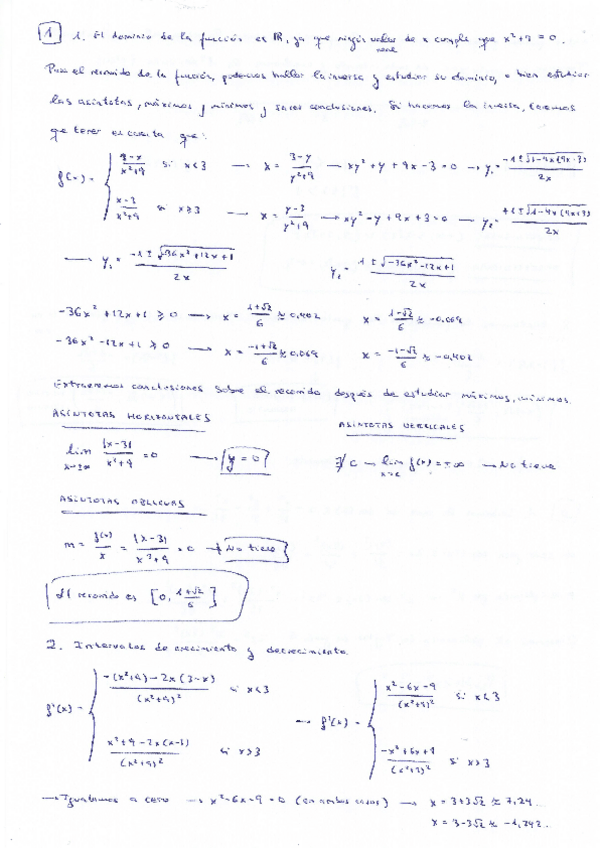 1 1. El dominio de la función es ℝ, ya que ningún valor real de x cumple que x²+9=0.
Para el recorrido de la función, podemos hallar la inversa y estudiar su dominio, o bien estudiar
las asíntotas, máximos y mínimos y sacar conclusiones. Si hacemos la inversa, tenemos
que tener en cuenta que:
f(x) = { (3-x)/(x²+9) si x<3 → x = (3-y)/(y²+9) → xy²+y+9x-3=0 → y₁ = (-1±√(1-4x(9x-3)))/2x
(x-3)/(x²+9) si x≥3 → x = (y-3)/(y²+9) → xy²-y+9x+3=0 → y₂ = (+1±√(1-4x(9x+3)))/2x
→ y₁ = (-1±√(-36x²+12x+1))/2x y₂ = (1±√(-36x²-12x+1))/2x
-36x²+12x+1 ≥ 0 → x = (1+√2)/6 ≈ 0,402 x = (1-√2)/6 ≈ -0,069
-36x²-12x+1 ≥ 0 → x = (-1+√2)/6 ≈ 0,069 x = (-1-√2)/6 ≈ -0,402
Extraeremos conclusiones sobre el recorrido después de estudiar máximos, mínimos.
ASÍNTOTAS HORIZONTALES ASÍNTOTAS VERTICALES
lim x→±∞ |x-3|/(x²+9) = 0 → y=0 ∄ c → lim x→c f(x) = ±∞ → No tiene
ASÍNTOTAS OBLICUAS
m = f(x)/x = |x-3|/(x³+9) = 0 → No tiene
El recorrido es [0, (1+√2)/6]
2. Intervalos de crecimiento y decrecimiento.
f'(x) = { (-(x²+9)-2x(3-x))/(x²+9)² si x<3 → f'(x) = { (x²-6x-9)/(x²+9)² si x<3
(x²+9-2x(x-3))/(x²+9)² si x>3 (-x²+6x+9)/(x²+9)² si x>3
→ Igualamos a cero → x²-6x-9=0 (en ambos casos) → x = 3+3√2 ≈ 7,24...
x = 3-3√2 ≈ -1,242...